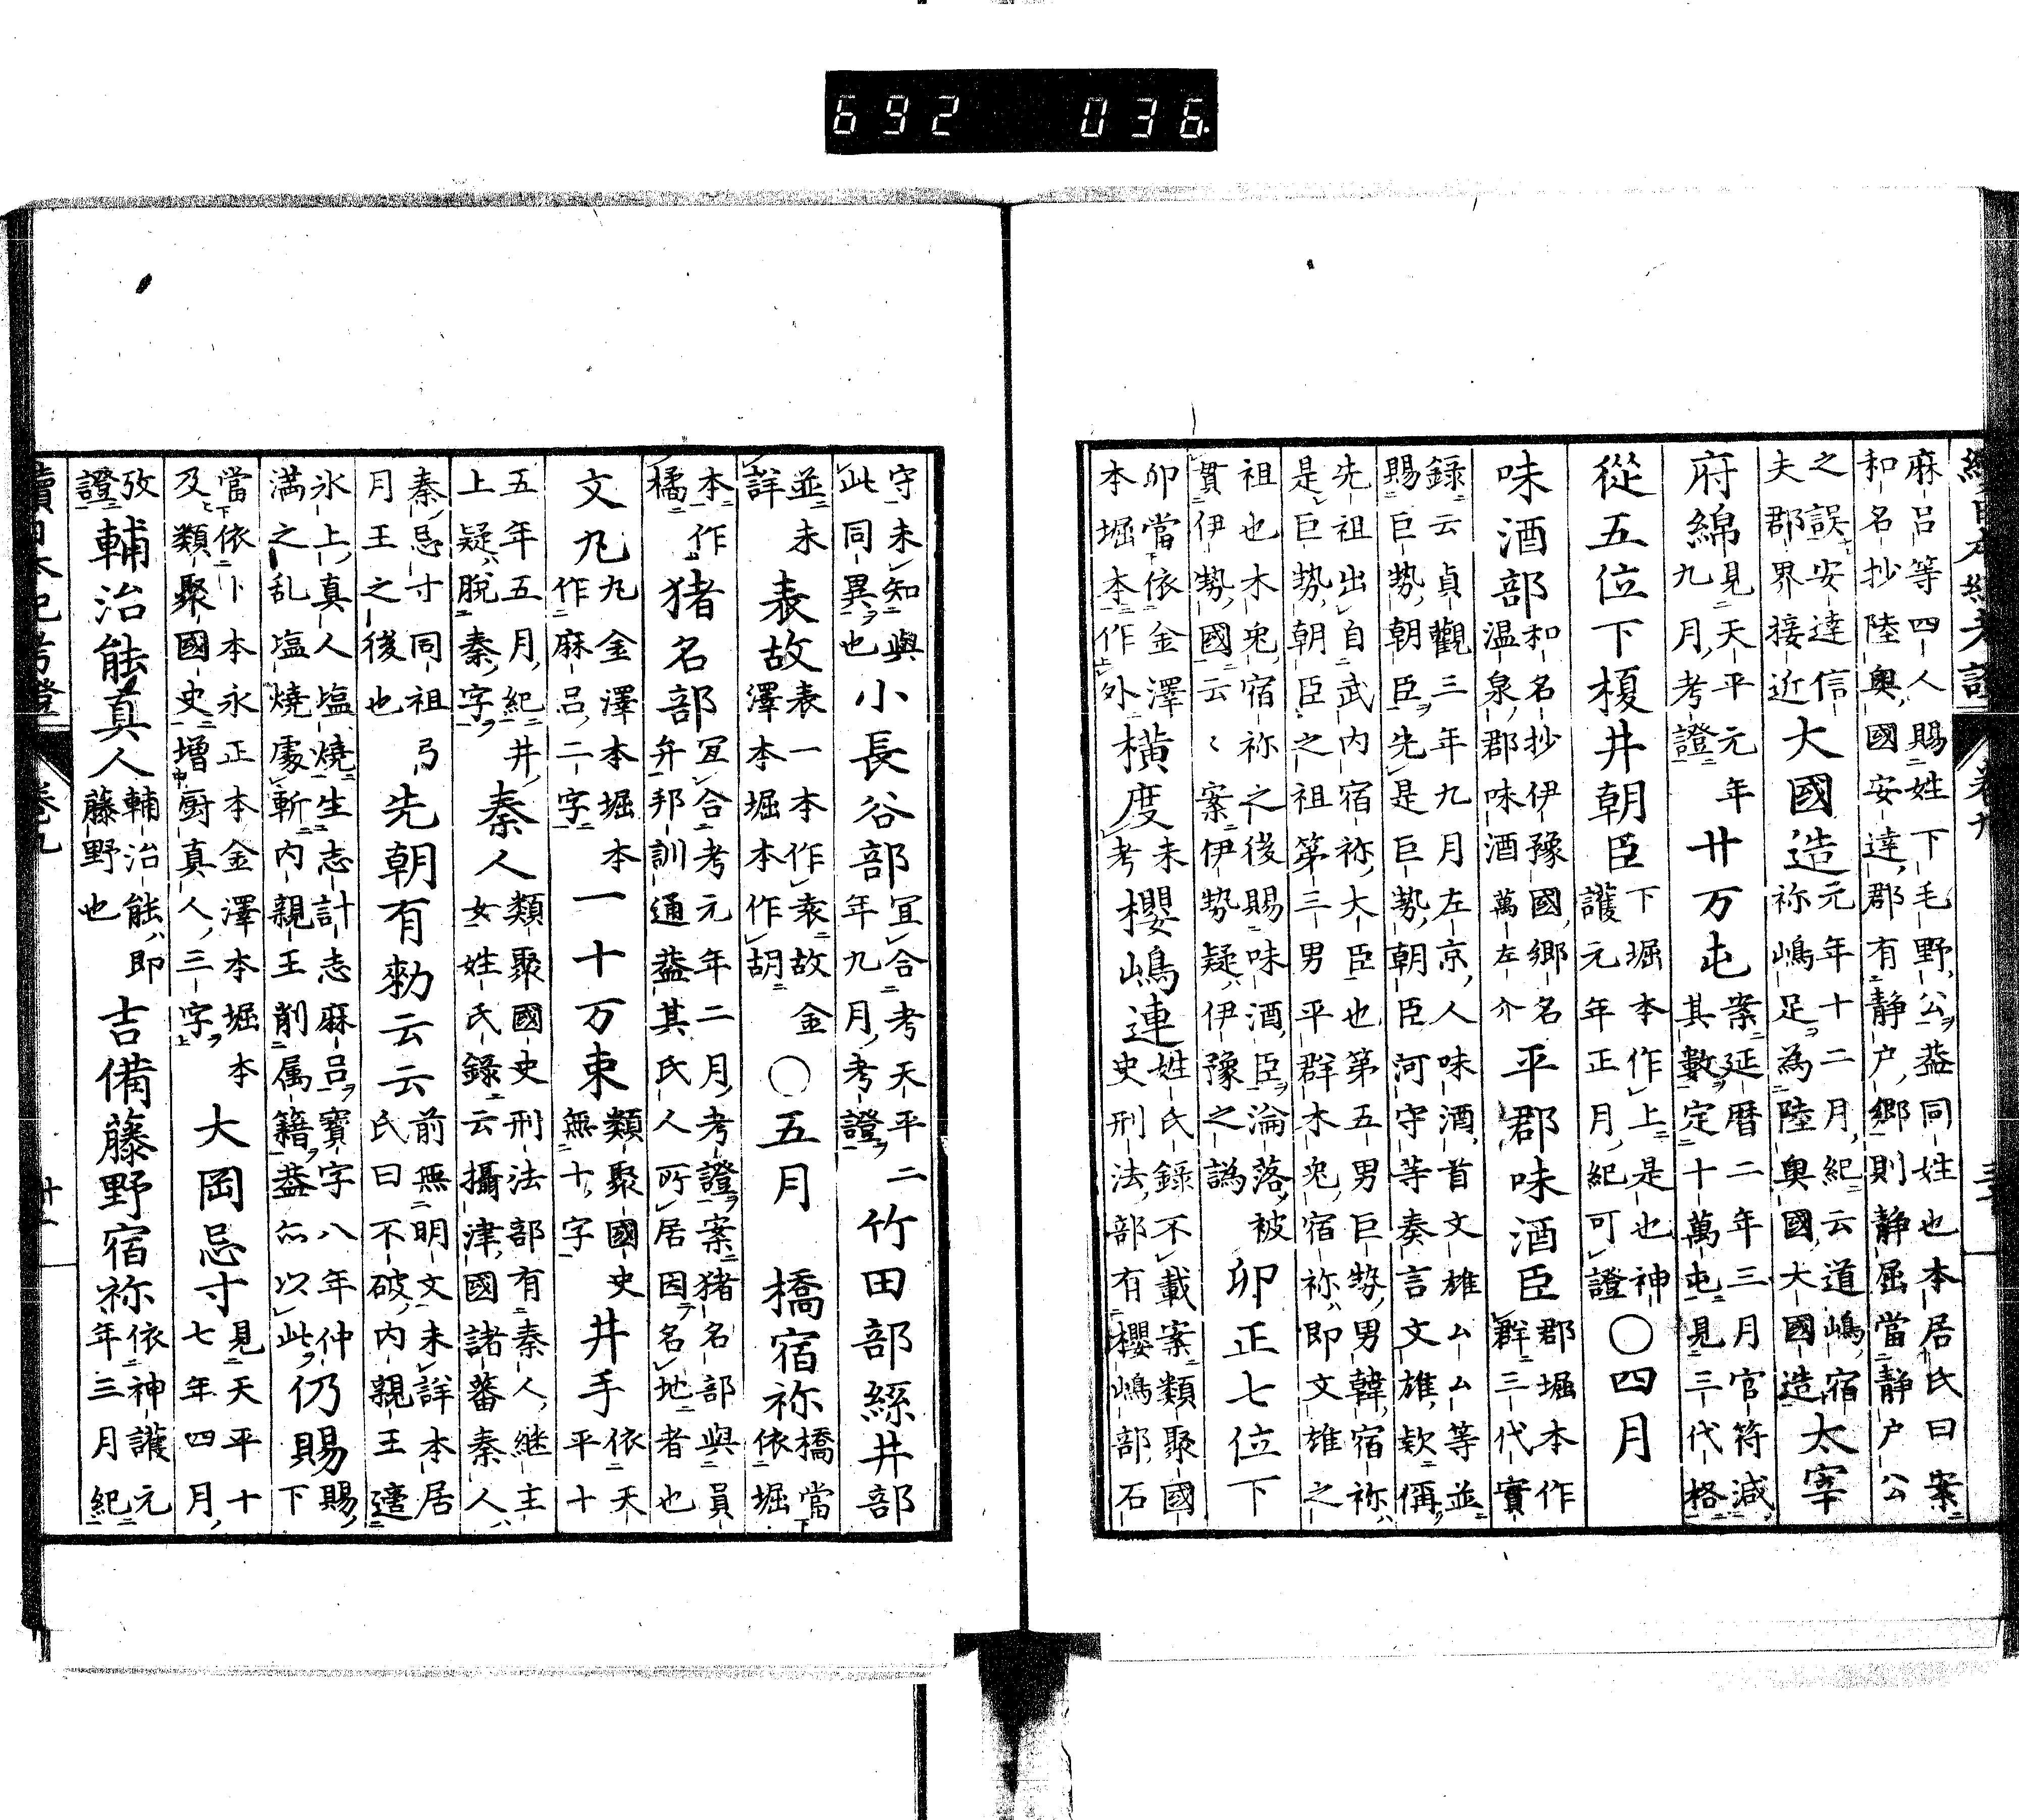 692 036
麻呂等四人賜姓下毛野公蓋同姓也本居氏曰案
和名抄陸奥國安達郡有静戸郷則静屈當静戸公
之誤安達信
夫郡界接近
大國造
元年十二月紀云道嶋宿
祢嶋足為陸奥國大國造
太宰
府綿
見天平元年
九月考證
廿万屯
案延暦二年三月官符減
其數定十萬屯見三代格
從五位下榎井朝臣
下堀本作上是也神
護元年正月紀可證
〇四月
味酒部
和名抄伊豫國郷名
温泉郡味酒萬左介
平郡味酒臣
郡堀本作
群三代實
録云貞觀三年九月左京人味酒首文雄厶厶等並
賜巨勢朝臣先是巨勢朝臣河守等奏言文雄欵偁
先祖出自武内宿祢大臣也第五男巨勢男韓宿祢
是巨勢朝臣之祖第三男平群木兎宿祢即文雄之
祖也木兎宿祢之後賜味酒臣淪落被
貫伊勢國云〻案伊勢疑伊豫之譌
卯正七位下
卯當依金澤
本堀本作外
横度
未
考
櫻嶋連
姓氏録不載案類聚國
史刑法部有櫻嶋部石
守未知與
此同異也
小長谷部
冝合考天平二
年九月考證
竹田部絲井部
並未
詳
表故
表一本作袁故金
澤本堀本作胡
〇五月
橋宿祢
橋當
依堀
本作
橘
猪名部
冝合考元年二月考證案猪名部與員
弁邦訓通蓋其氏人所居因名地者也
文凡
凡金澤本堀本
作麻呂二字
一十万束
類聚國史
無十字
井手
依天
平十
五年五月紀井
上疑脱秦字
秦人
類聚國史刑法部有秦人継主
女姓氏録云攝津國諸蕃秦人
秦忌寸同祖弓
月王之後也
先朝有勅云云
前無明文未詳本居
氏曰不破内親王𨗉
氷上真人塩燒生志計志麻呂寳字八年仲
満之乱塩燒處斬内親王削属籍蓋亦以此
仍賜
賜
下
當依卜本永正本金澤本堀本
及類聚國史増厨真人三字
大岡忌寸
見天平十
七年四月
攷
證
輔治能真人
輔治能即
藤野也
吉備藤野宿祢
依神護元
年三月紀
續日本紀考證
卷九
廿一